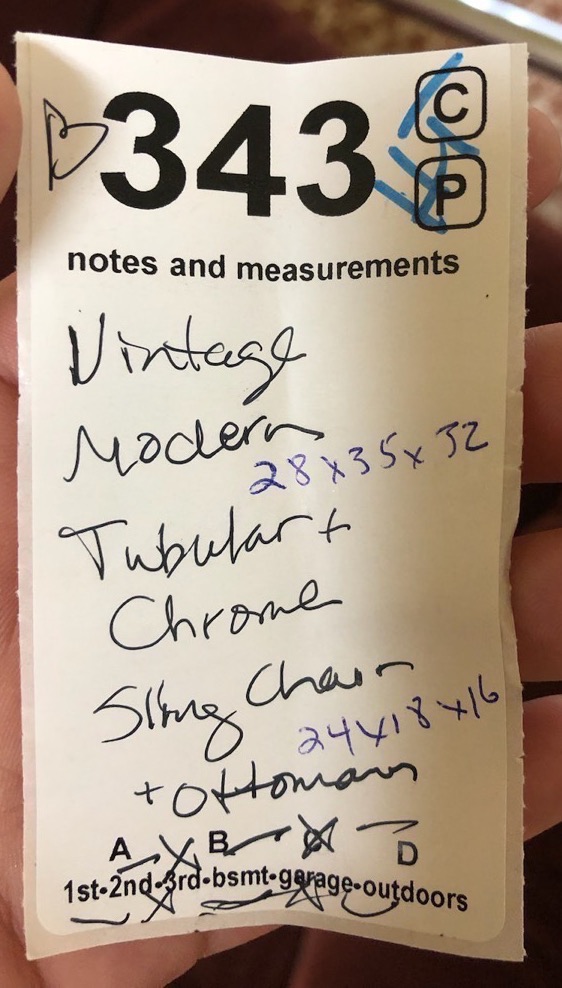 B 343 C
P
notes and measurements
Vintage
Modern
28x35x32
Tubular +
Chrome
Sling Chair
24x18x16
+ Ottoman
A B C D
1st-2nd-3rd-bsmt-garage-outdoors